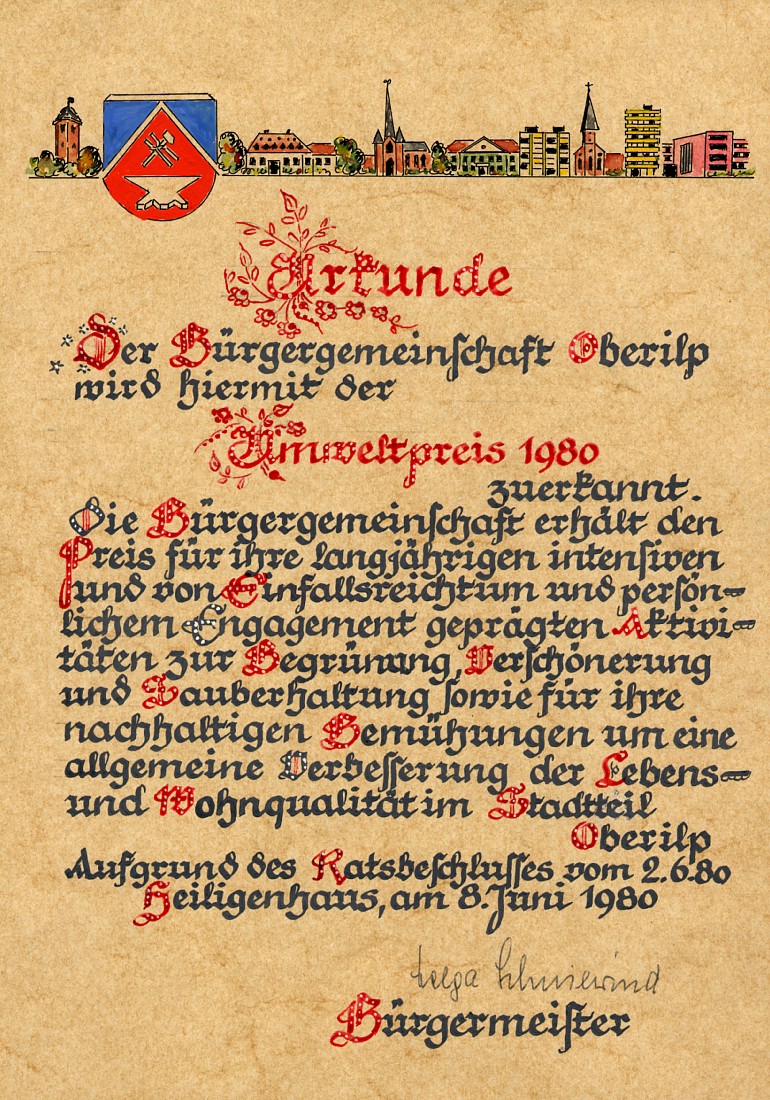 Urkunde
Der Bürgergemeinschaft Oberilp
wird hiermit der
Umweltpreis 1980
zuerkannt.
Die Bürgergemeinschaft erhält den
Preis für ihre langjährigen intensiven
und von Einfallsreichtum und persön-
lichem Engagement geprägten Aktivi-
täten zur Begrünung, Verschönerung
und Sauberhaltung sowie für ihre
nachhaltigen Bemühungen um eine
allgemeine Verbesserung der Lebens-
und Wohnqualität im Stadtteil
Oberilp
Aufgrund des Ratsbeschlusses vom 2.6.80
Heiligenhaus, am 8. Juni 1980
Helga Schniewind
Bürgermeister